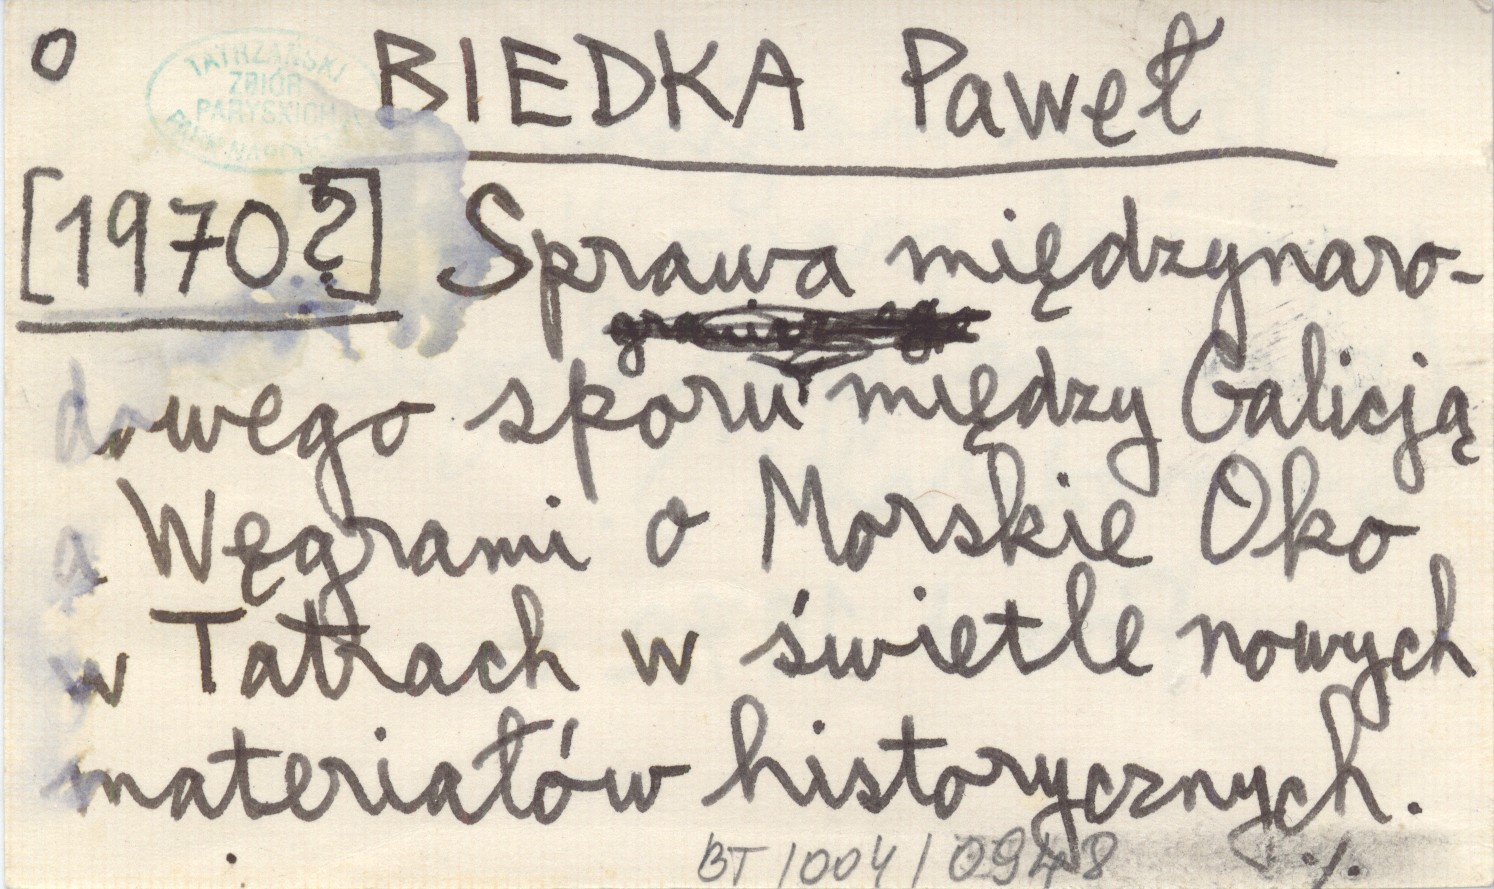 o BIEDKA Paweł
TATRZAŃSKI
ZBIÓR
PARYSKICH
[1970?] Sprawa międzynaro-
dowego sporu między Galicją
a Węgrami o Morskie Oko
w Tatrach w świetle nowych
materiałów historycznych.
BT/004/0948 ./.